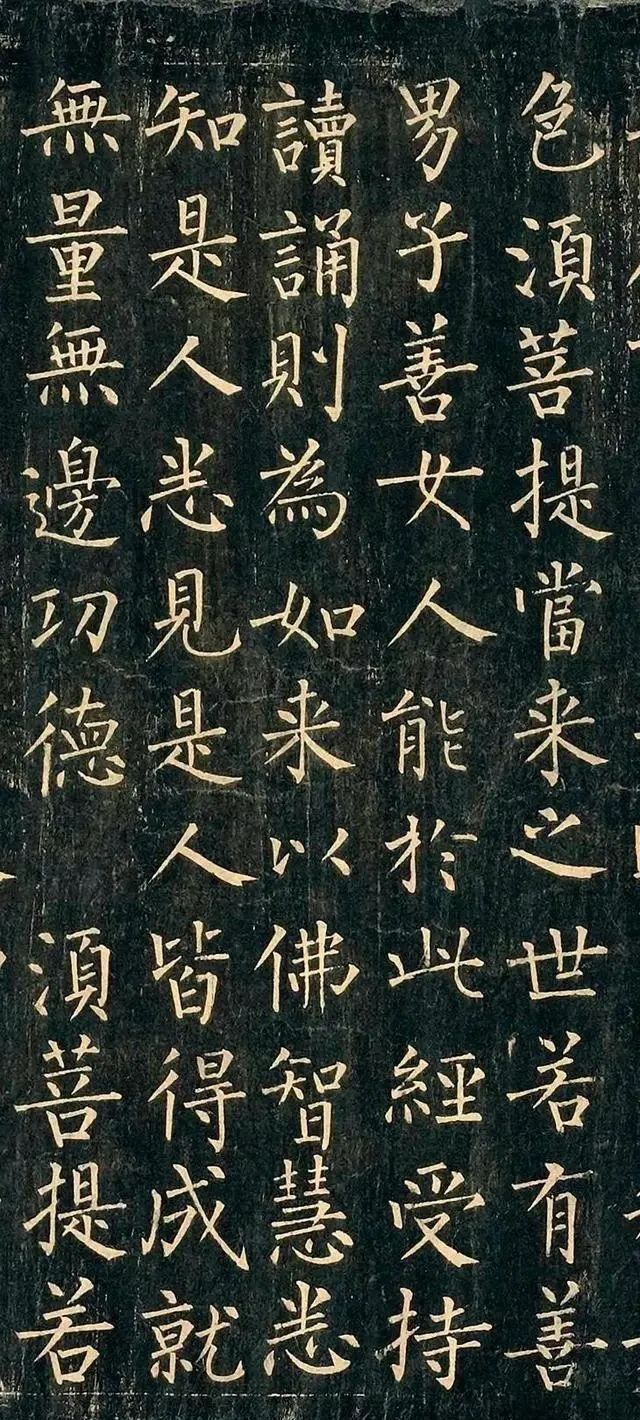 色湏菩提當来之世若有善
男子善女人能於此經受持
讀誦則為如来以佛智慧悉
知是人悉見是人皆得成就
無量無邊功德湏菩提若